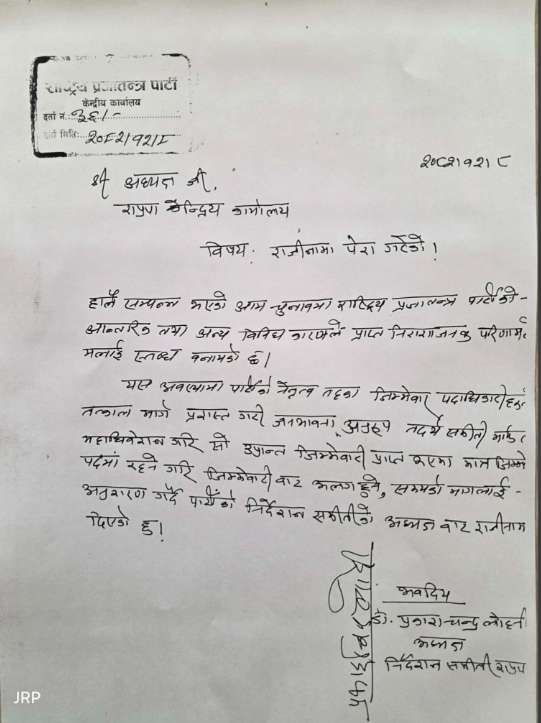 राष्ट्रिय प्रजातन्त्र पार्टी
केन्द्रीय कार्यालय
दर्ता नं. ३६१
दर्ता मिति: २०८२/१२/८
२०८२/१२/८
श्री अध्यक्ष ज्यू,
राप्रपा केन्द्रिय कार्यालय
विषय: राजीनामा पेश गरेको।
हालै सम्पन्न भएको आम चुनावमा राष्ट्रिय प्रजातन्त्र पार्टीको
आन्तरिक तथा अन्य विविध कारणले प्राप्त निराशाजनक परिणामले
मलाई स्तब्ध बनाएको छ।
यस अवस्थामा पार्टीको नेतृत्व तहका जिम्मेवार पदाधिकारीहरू
तत्काल मार्ग प्रशस्त गरी जनभावना अनुरूप तदर्थ समिती मार्फत
महाधिवेशन गरि सो उप्रान्त जिम्मेवारी प्राप्त भएमा मात्र
पदमा रहने गरि जिम्मेवारी बाट अलग हुने, समयको मागलाई
अनुशरण गर्दै पार्टीको निर्देशन समितीको अध्यक्ष बाट राजीनामा
दिएको छु।
भवदिय
डा. प्रकाश चन्द्र लोहनी
अध्यक्ष
निर्देशन समीती राप्रपा
JRP